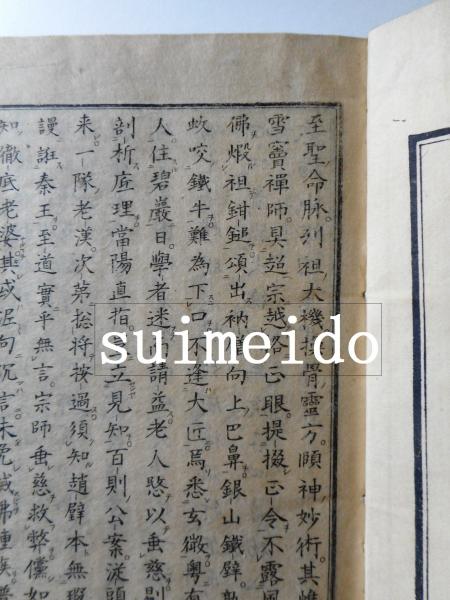 至聖命脉。列祖大機換骨靈方。頤神妙術。其惟
雪竇禪師。具超宗越格正眼。提掇正令。不露風
佛煅祖鉗鎚。頌出衲僧向上巴鼻。銀山鐵壁。孰
蚊咬鐵牛難為下口。不逢大匠焉悉玄微。粤有
人住碧巖日。學者迷請益老人愍以垂慈剔
剖析底理當陽直指。立見知百則公案。從頭
来一隊老漢次第捴將按過須知趙璧本無瑕
謾誑秦王至道實乎無言。宗師垂慈救弊儻如
知徹底老婆其或泥句沉言未免滅佛種族普
suimeido